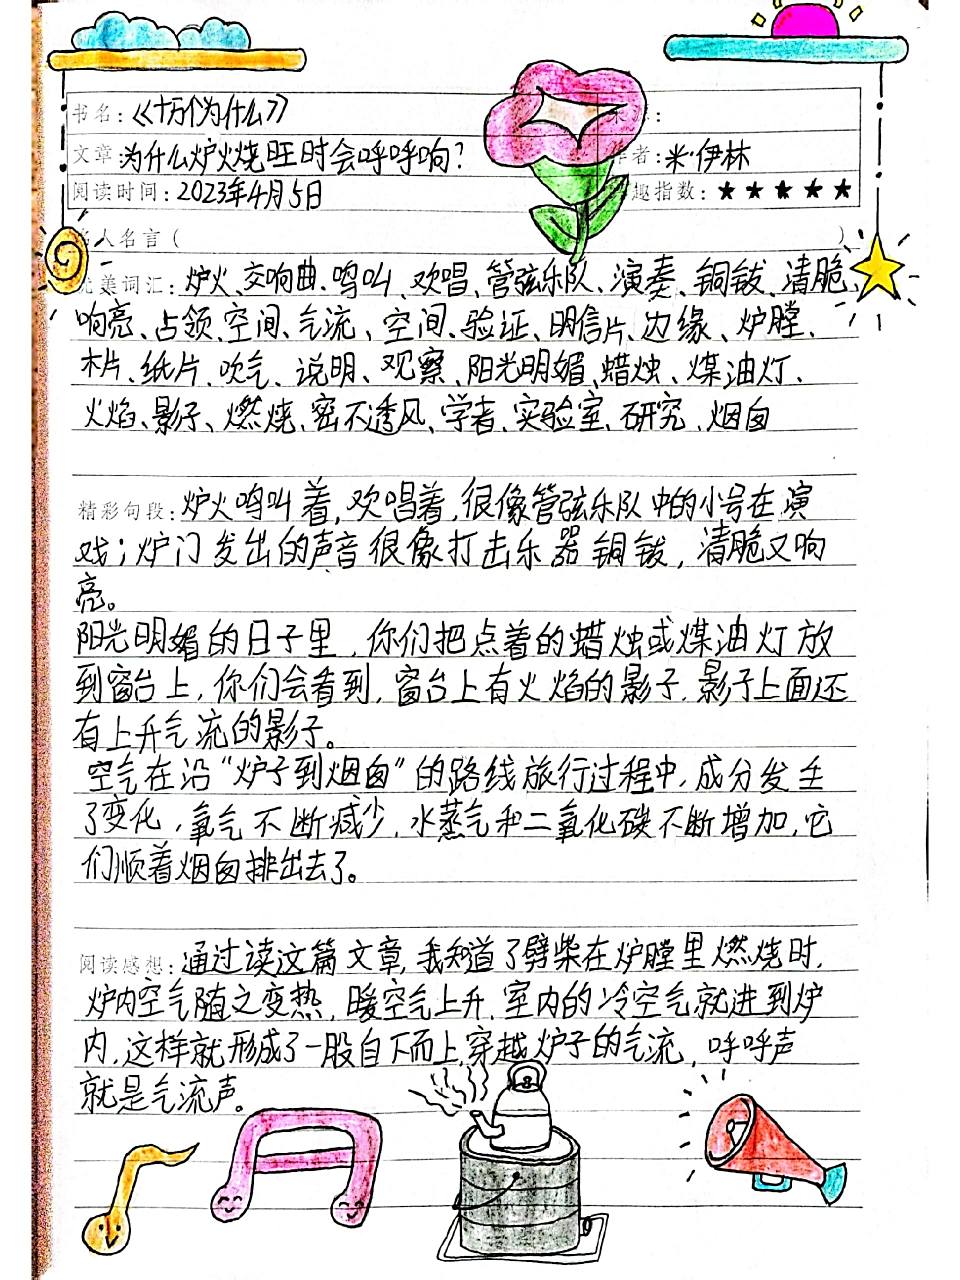 书名：《十万个为什么》
文章 为什么炉火烧旺时会呼呼响？ 作者：米·伊林
阅读时间：2023年4月5日 趣指数：★★★★★
人名言（ ）
优美词汇：炉火、交响曲、鸣叫、欢唱、管弦乐队、演奏、铜钹、清脆、
响亮、占领、空间、气流、空间、验证、明信片、边缘、炉膛、
木片、纸片、吹气、说明、观察、阳光明媚、蜡烛、煤油灯、
火焰、影子、燃烧、密不透风、学者、实验室、研究、烟囱
精彩句段：炉火鸣叫着，欢唱着，很像管弦乐队中的小号在演
戏；炉门发出的声音很像打击乐器铜钹，清脆又响
亮。
阳光明媚的日子里，你们把点着的蜡烛或煤油灯放
到窗台上，你们会看到，窗台上有火焰的影子，影子上面还
有上升气流的影子。
空气在沿“炉子到烟囱”的路线旅行过程中，成分发生
了变化，氧气不断减少，水蒸气和二氧化碳不断增加，它
们顺着烟囱排出去了。
阅读感想：通过读这篇文章，我知道了劈柴在炉膛里燃烧时，
炉内空气随之变热，暖空气上升，室内的冷空气就进到炉
内，这样就形成了一股自下而上穿越炉子的气流，呼呼声
就是气流声。